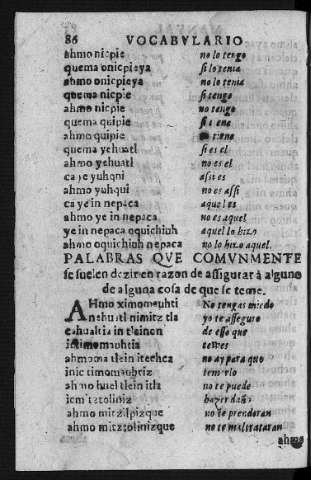 86 VOCABVLARIO
ahmo nicpie no lo tengo
quema onicpieya si lo tenia
ahmo onicpieya no lo tenia
quema nicpie si tengo
ahmo nicpie no tengo
quema quipie si tiene
ahmo quipie no tiene
quema yehuatl si es el
ahmo yehuatl no es el
ca ye yuhqui assi es
ahmo yuhqui no es assi
ca ye in nepaca aquel es
ahmo ye in nepaca no es aquel
ye in nepaca oquichiuh aquel lo hizo
ahmo oquichiuh nepaca no lo hizo aquel.
PALABRAS QVE COMVNMENTE
se suelen dezir en razon de assigurar à alguno
de alguna cosa de que se teme.
AHmo ximomauhti No tengas miedo
nehuatl nimitz tla yo te asseguro
cahualtia in tleinon de esso que
ticimomauhtia temes
ahmo tlein itechca no ay para que
inic timomauhtiz temerlo
ahmo huel tlein itla no te puede
hazer daño
ahmo mitzilpizque no te prenderan
ahmo mitztolinizque no te maltrataran
ahmo